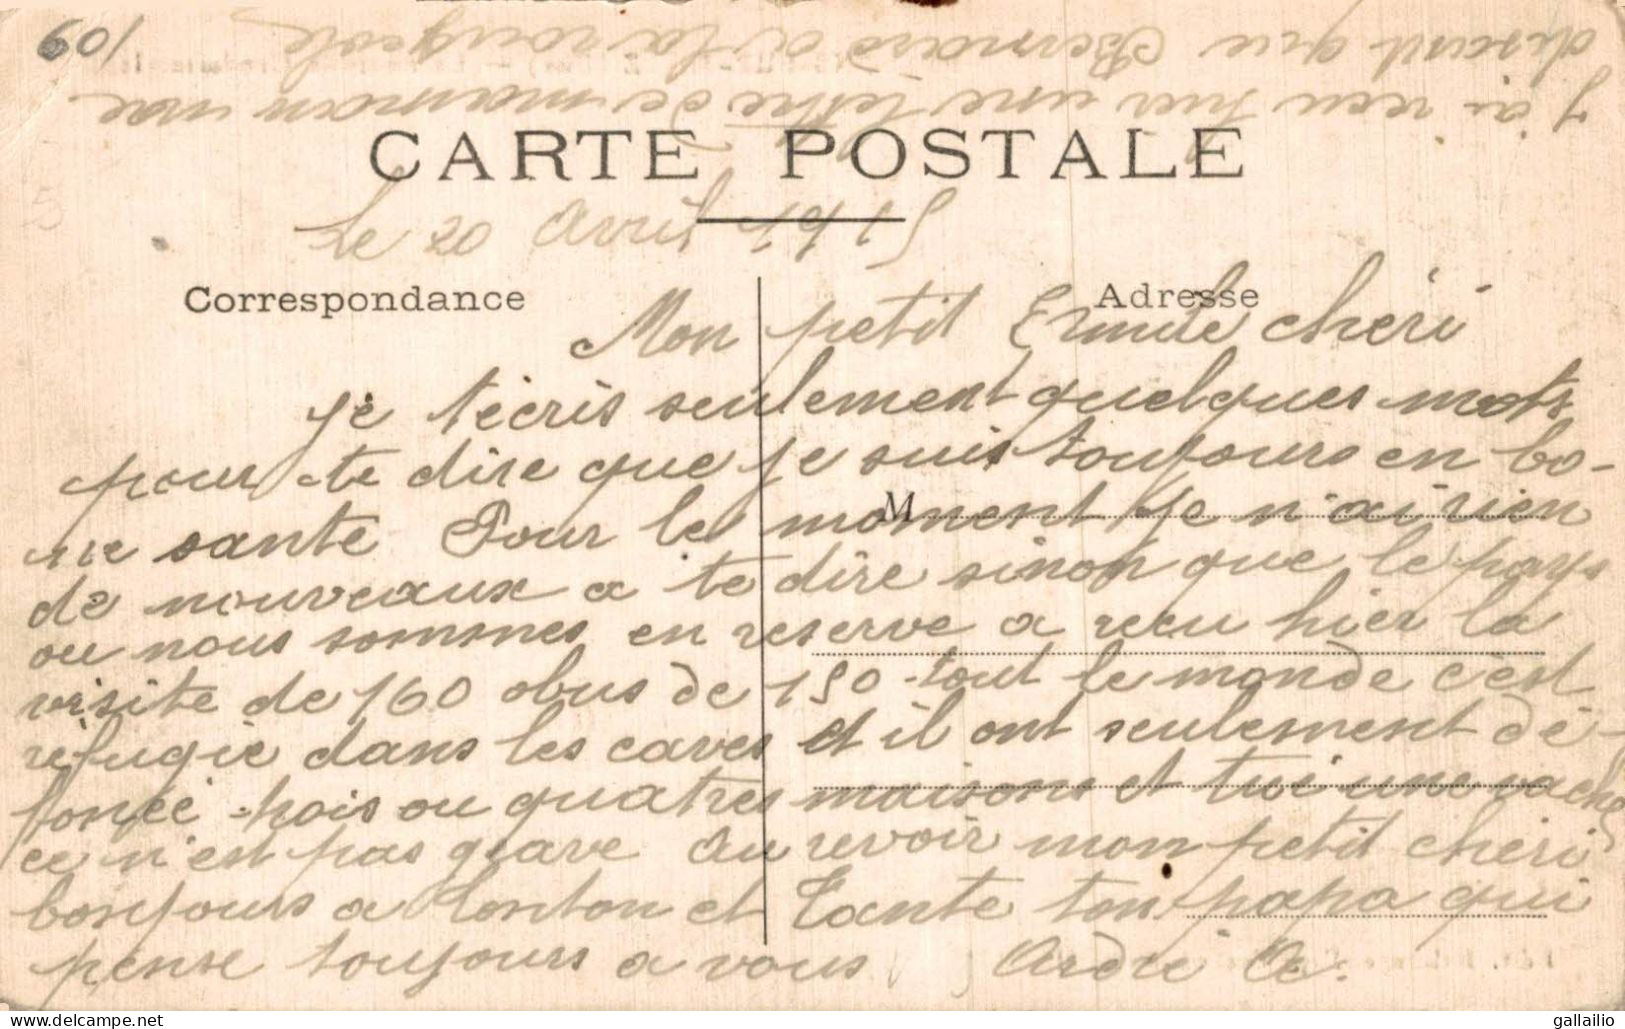 60
J'ai recu hier une lettre de maman me
disant que Bernard a la rougeole
CARTE POSTALE
Le 20 Avril 1915
Correspondance
Adresse
Mon petit Emile cheri
Je t'écris seulement quelques mots
pour te dire que je suis toujours en bo-
ne sante Pour le moment je n'ai rien
M
de nouveaux a te dire sinon que le pays
ou nous sommes en reserve a recu hier la
visite de 160 obus de 150 tout le monde c'est
réfugie dans les caves et il ont seulement dé-
foncé trois ou quatres maisons et tué une vache
ce n'est pas grave Au revoir mon petit cheri
bonjours a Tonton et Tante ton papa qui
pense toujours a vous
gallailio